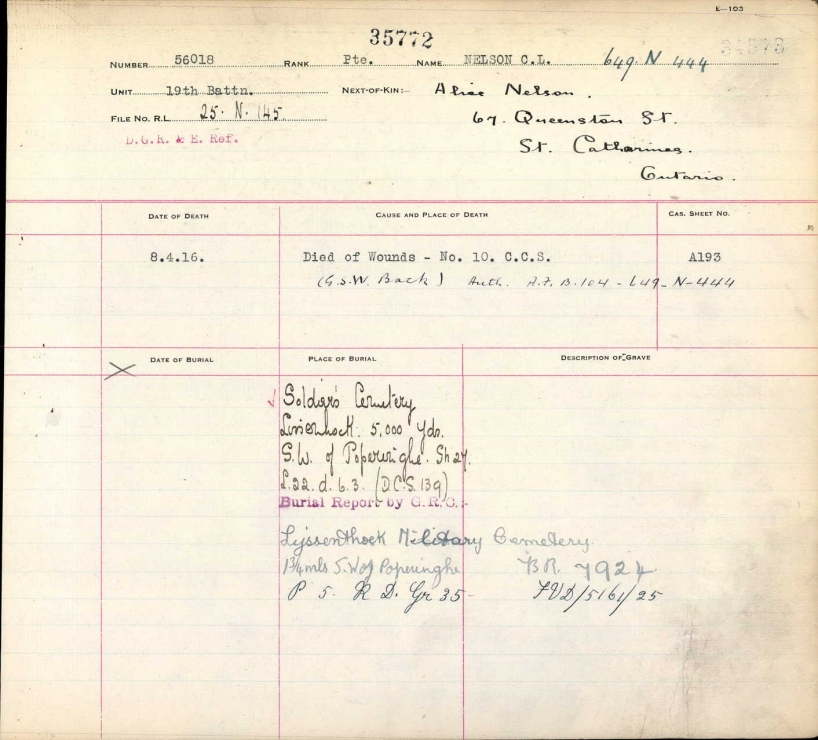 E—103
35772
NUMBER 56018 RANK Pte. NAME NELSON C.L. 649-N-444
UNIT 19th Battn. NEXT-OF-KIN:— Alice Nelson.
FILE NO. R.L. 25-N-145. 67. Queenston St.
D.G.R. & E. Ref. St. Catharines.
Ontario.
DATE OF DEATH CAUSE AND PLACE OF DEATH CAS. SHEET NO.
8.4.16. Died of Wounds - No. 10. C.C.S. A193
(G.S.W. Back) Auth. A.F. B.104-649-N-444
DATE OF BURIAL PLACE OF BURIAL DESCRIPTION OF GRAVE
Soldier's Cemetery
Lissenhock. 5,000 yds.
S.W. of Poperinghe. Sh 27.
L.22.d.6.3. (D.C.S. 139)
Burial Report by G.R.O:-
Lijssenthoek Military Cemetery.
1¾ mls S.W of Poperinghe BR. 7924
P 5. R D. Gr 35- FVD/5161/25